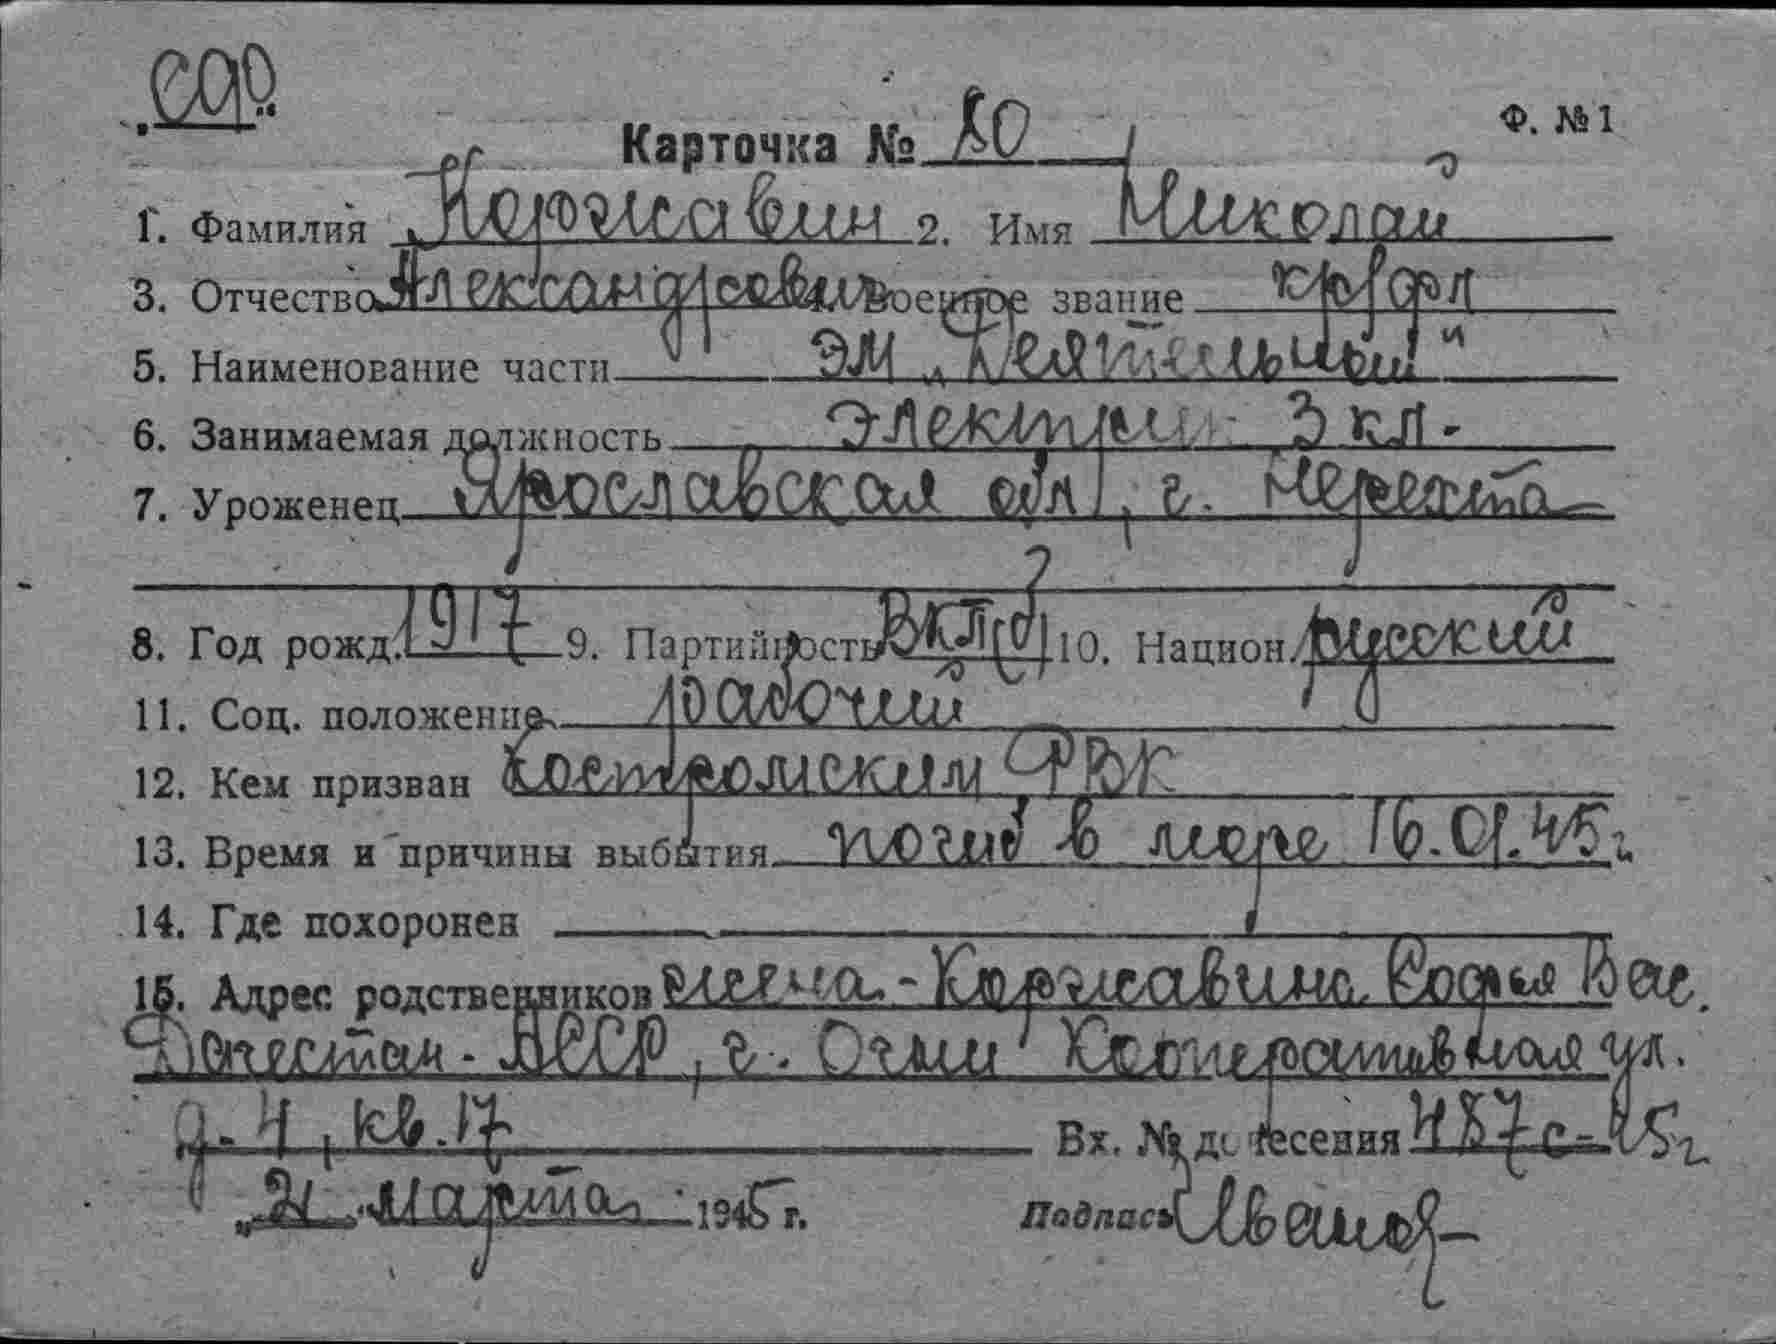 Ф. №1
Карточка № 80
1. Фамилия Коржавин 2. Имя Николай
3. Отчество Александрович Военное звание кр/фл
5. Наименование части ЭМ „Деятельный"
6. Занимаемая должность Электрик 3 кл.
7. Уроженец Ярославская обл, г. Нерехта
8. Год рожд. 1917 9. Партийность ВКП(б) 10. Национ. русский
11. Соц. положение рабочий
12. Кем призван Костромским РВК
13. Время и причины выбытия погиб в море 16.01.45г
14. Где похоронен
15. Адрес родственников жена - Коржавина Софья Вас.
Дагестан. АССР, г. Огни Кооперативная ул.
д. 4, кв. 17 Вх. № донесения 487с-45г
„21" марта 1945 г. Подпись Иванов